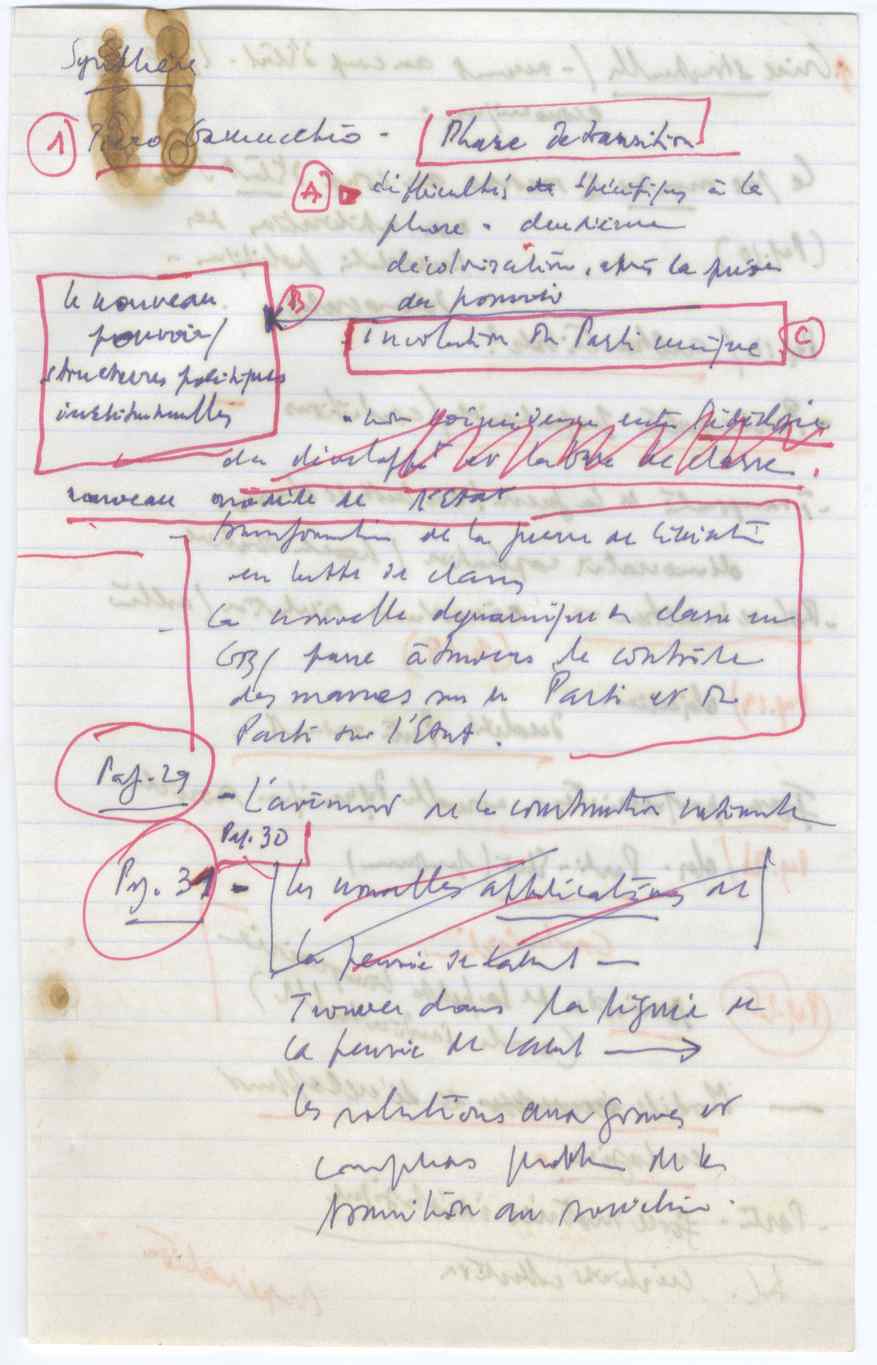 Synthèse
1 Piero Gamacchio - Phase de transition
A difficultés de spécifiques à la
phase - deuxième
décolonisation, après la prise
du pouvoir
B
le nouveau
pouvoir/
structures politiques
institutionnelles
involution du Parti unique C
- non coïncidence entre l'idéologie
du et la base de classe.
nouveau modèle de l'Etat
- transformation de la guerre de libération
en lutte de classes
- la nouvelle dynamique de classe en
GB/ passe à travers le contrôle
des masses sur le Parti et du
Parti sur l'Etat.
Pag. 29
- L'avenir de la construction nationale
Pag. 30
Pag. 31 - les nouvelles applications de
la pensée de Cabral —
Trouver dans la lignée de
la pensée de Cabral →
les solutions aux graves et
complexes problèmes de la
transition au socialisme.